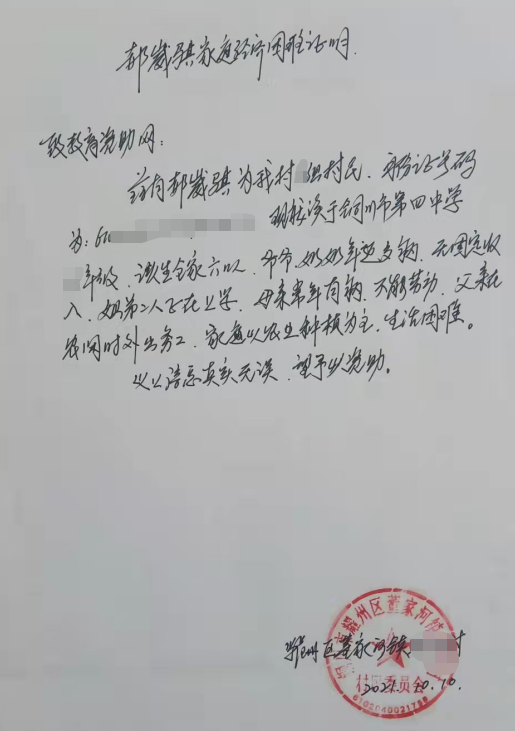 郝崴骐家庭经济困难证明.
致教育资助网:
兹有郝崴骐为我村 组村民,身份证号码
为:6 现就读于铜川市第四中学
年级,该生全家六口,爷爷、奶奶年迈多病,无固定收
入,姐弟二人正在上学,母亲常年有病,不能劳动,父亲在
农闲时外出务工,家庭以农业种植为主,生活困难。
以上信息真实无误,望予以资助。
耀州区董家河镇 村
2021.10.16
耀州区董家河镇
村民委员会